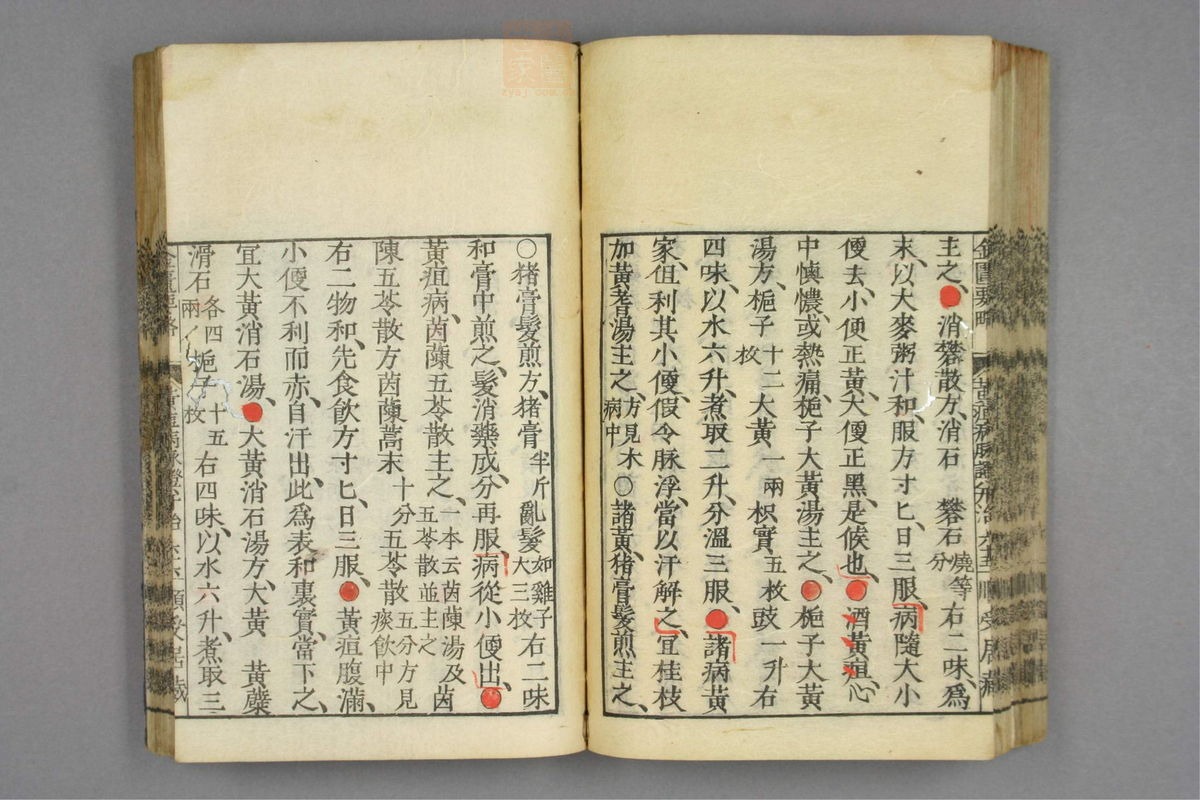 主之、消礬散方、消石 礬石燒等分右二味、爲
末、以大麥粥汁和、服方寸匕、日三服、病隨大小
便去、小便正黃、大便正黑、是候也、酒黃疸、心
中懊憹、或熱痛、梔子大黃湯主之、梔子大黃
湯方、梔子十二枚大黃一兩枳實五枚豉一升右
四味、以水六升、煮取二升、分溫三服、諸病黃
家、但利其小便、假令脉浮、當以汗解之、宜桂枝
加黃耆湯主之、方見水病中○諸黃、猪膏髮煎主之、
○猪膏髮煎方、猪膏半斤亂髮如雞子大三枚右二味
和膏中煎之、髮消藥成、分再服、病從小便出、
黃疸病、茵蔯五苓散主之、一本云茵蔯湯及五苓散並主之茵
陳五苓散方茵陳蒿末十分五苓散五分方見痰飲中
右二物和、先食飲方寸匕、日三服、黃疸腹滿、
小便不利而赤、自汗出、此爲表和裏實、當下之、
宜大黃消石湯、大黃消石湯方、大黃 黃蘗
滑石各四兩梔子十五枚右四味、以水六升、煮取三